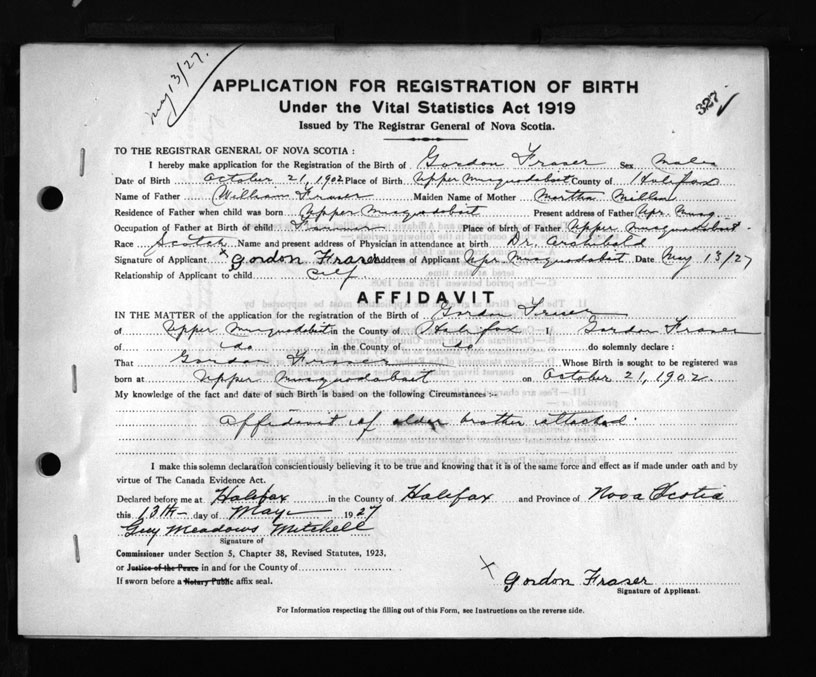 May 13/27.
327 ✓
APPLICATION FOR REGISTRATION OF BIRTH
Under the Vital Statistics Act 1919
Issued by The Registrar General of Nova Scotia.
TO THE REGISTRAR GENERAL OF NOVA SCOTIA :
I hereby make application for the Registration of the Birth of Gordon Fraser Sex Male
Date of Birth October 21, 1902 Place of Birth Upper Musquodoboit County of Halifax
Name of Father William Fraser Maiden Name of Mother Martha
Residence of Father when child was born Upper Musquodoboit Present address of Father Upr. Musq
Occupation of Father at Birth of child Farmer Place of birth of Father Upper Musquodoboit.
Race Scotch Name and present address of Physician in attendance at birth Dr. Archibald
Signature of Applicant x Gordon Fraser Address of Applicant Upr Musquodobit Date May 13/27
Relationship of Applicant to child self
AFFIDAVIT
IN THE MATTER of the application for the registration of the Birth of Gordon Fraser
of Upper Musquodobit in the County of Halifax I Gordon Fraser
of do in the County of do do solemnly declare :
That Gordon Fraser Whose Birth is sought to be registered was
born at Upper Musquodoboit on October 21, 1902
My knowledge of the fact and date of such Birth is based on the following Circumstances :-
Affidavit of elder brother attached.
I make this solemn declaration conscientiously believing it to be true and knowing that it is of the same force and effect as if made under oath and by
virtue of The Canada Evidence Act.
Declared before me at Halifax in the County of Halifax and Province of Nova Scotia
this 13th day of May 1927
Guy Meadows Mitchell
Signature of
Commissioner under Section 5, Chapter 38, Revised Statutes, 1923,
or Justice of the Peace in and for the County of
If sworn before a Notary Public affix seal.
x Gordon Fraser
Signature of Applicant.
For Information respecting the filling out of this Form, see Instructions on the reverse side.